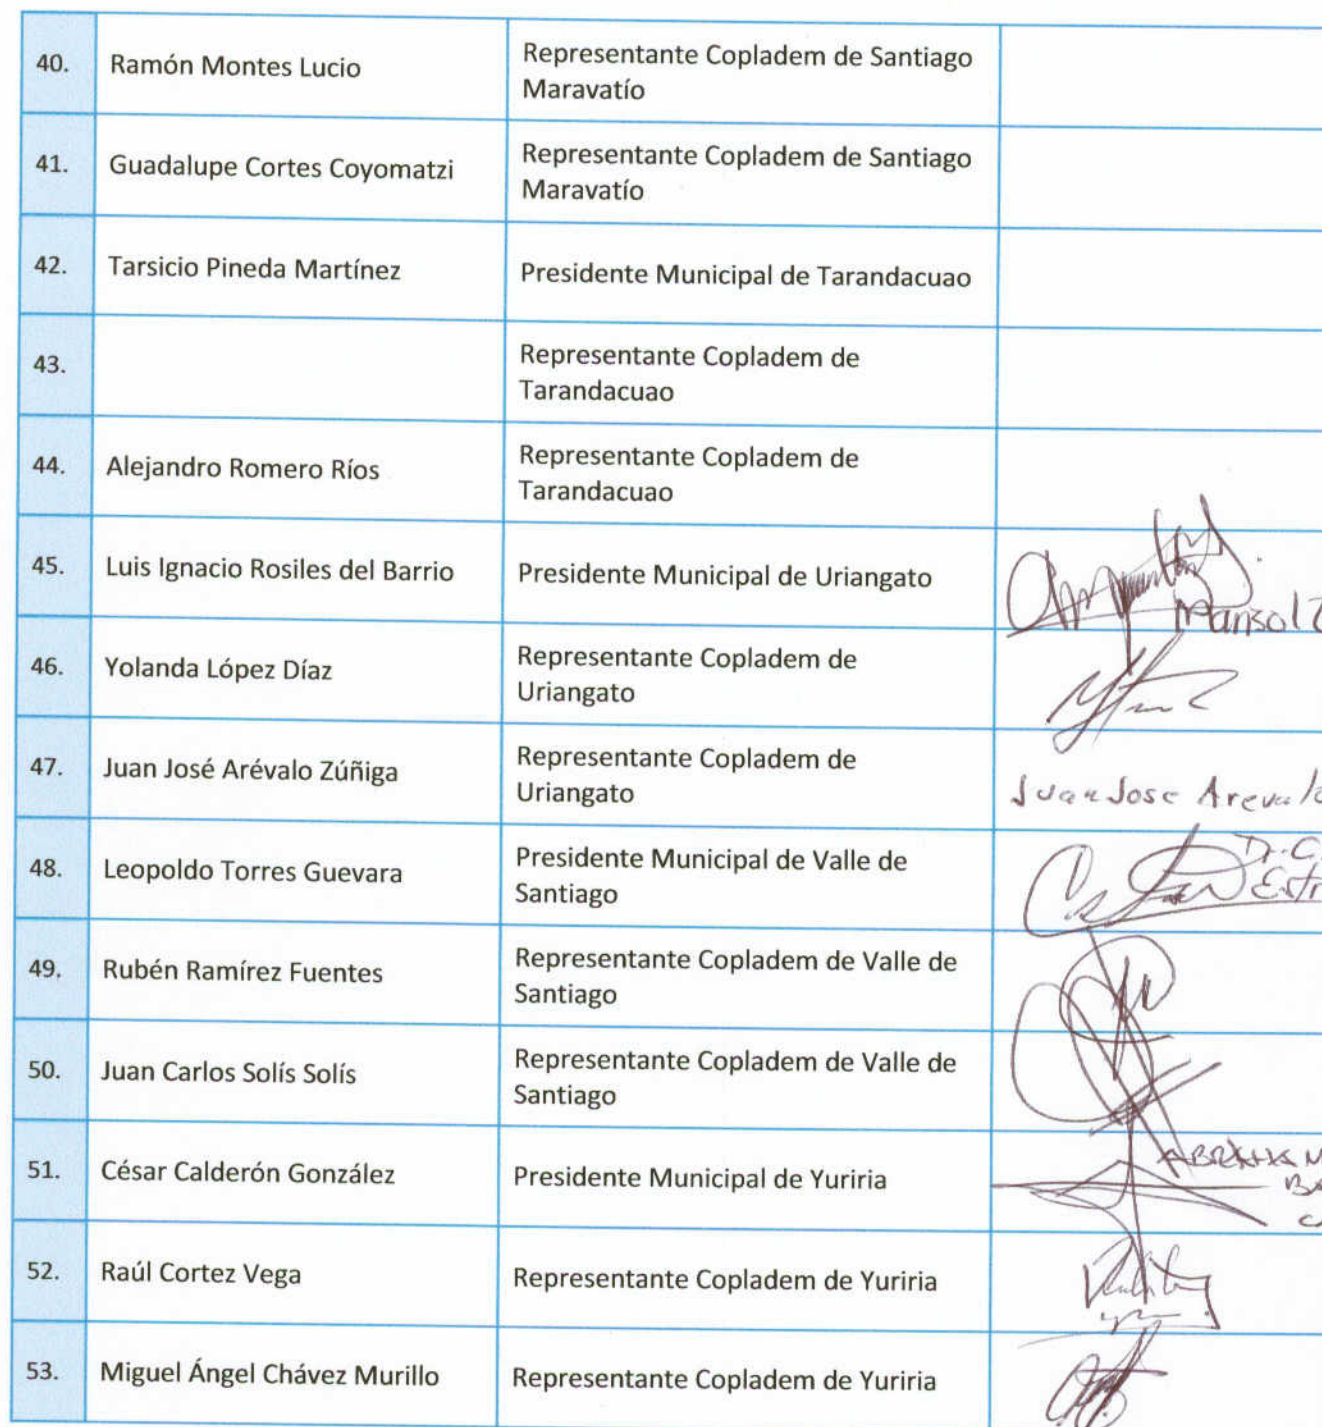 40. Ramón Montes Lucio Representante Copladem de Santiago
Maravatío
41. Guadalupe Cortes Coyomatzi Representante Copladem de Santiago
Maravatío
42. Tarsicio Pineda Martínez Presidente Municipal de Tarandacuao
43. Representante Copladem de
Tarandacuao
44. Alejandro Romero Ríos Representante Copladem de
Tarandacuao
45. Luis Ignacio Rosiles del Barrio Presidente Municipal de Uriangato
Marisol
46. Yolanda López Díaz Representante Copladem de
Uriangato
47. Juan José Arévalo Zúñiga Representante Copladem de
Uriangato
Juan Jose Arevalo
48. Leopoldo Torres Guevara Presidente Municipal de Valle de
Santiago
Dr. C.
Estr
49. Rubén Ramírez Fuentes Representante Copladem de Valle de
Santiago
50. Juan Carlos Solís Solís Representante Copladem de Valle de
Santiago
51. César Calderón González Presidente Municipal de Yuriria
52. Raúl Cortez Vega Representante Copladem de Yuriria
53. Miguel Ángel Chávez Murillo Representante Copladem de Yuriria